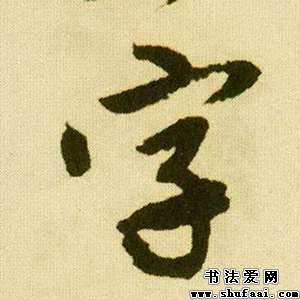 字
书法爱网
www.shufaai.com